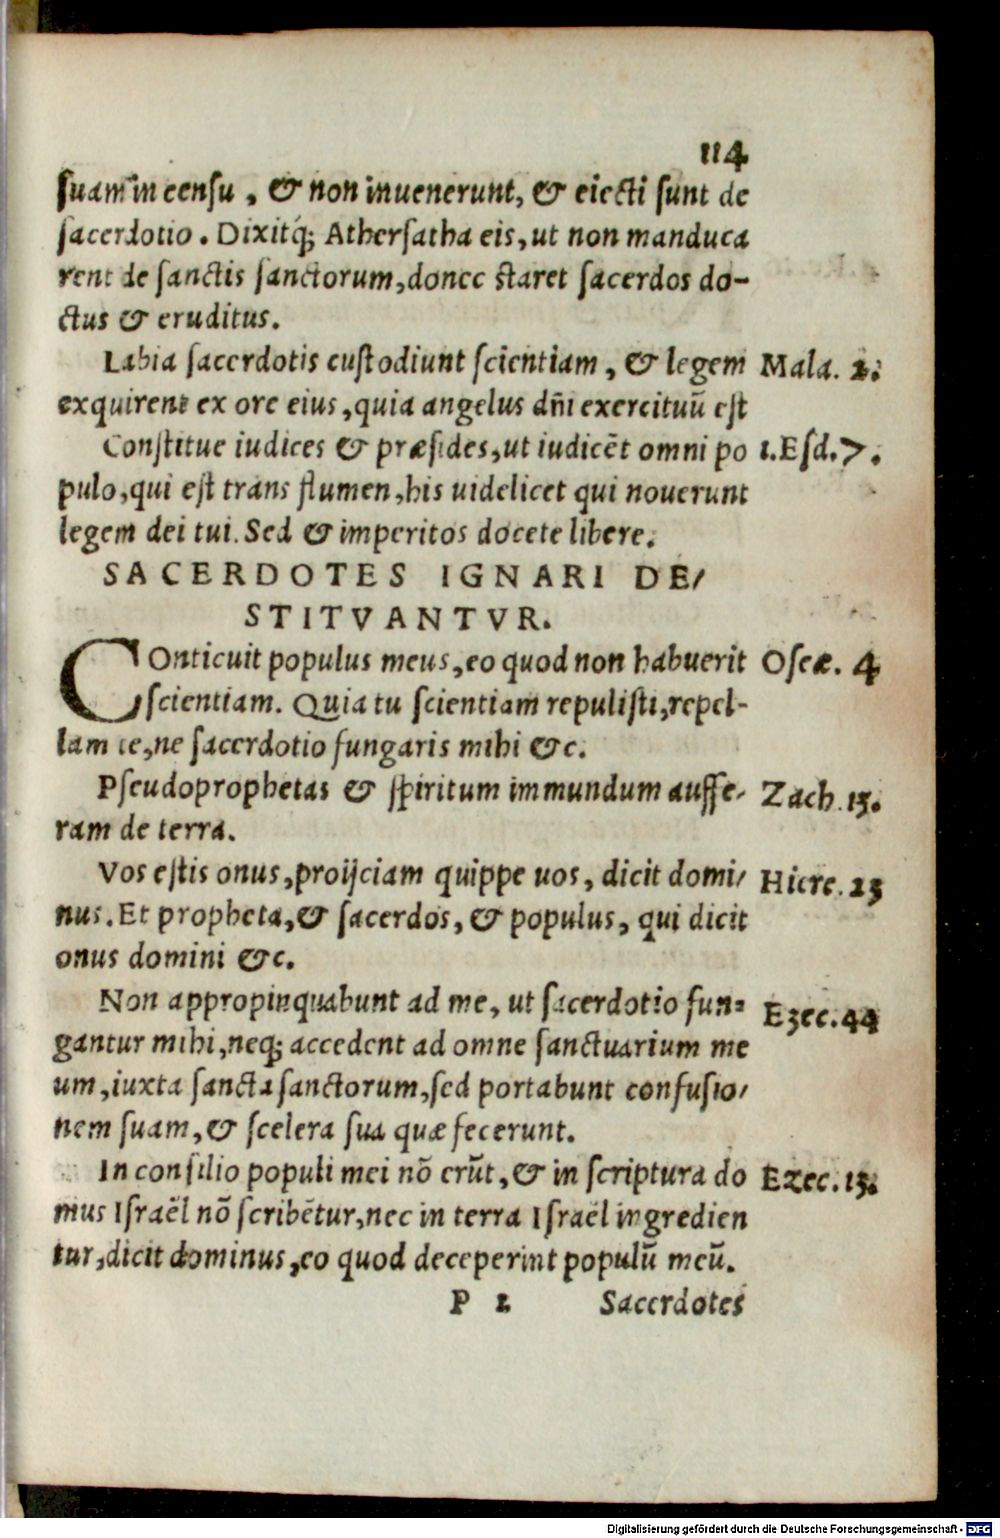 114
suam in censu, & non inuenerunt, & eiecti sunt de
sacerdotio. Dixitq́; Athersatha eis, ut non manduca
rent de sanctis sanctorum, donec staret sacerdos do-
ctus & eruditus.
Labia sacerdotis custodiunt scientiam, & legem Mala. 2.
exquirent ex ore eius, quia angelus dñi exercituũ est
Constitue iudices & præsides, ut iudicẽt omni po 1. Esd. 7.
pulo, qui est trans flumen, his uidelicet qui nouerunt
legem dei tui. Sed & imperitos docete libere.
SACERDOTES IGNARI DE/
STITVANTVR.
COnticuit populus meus, eo quod non habuerit Oseæ. 4
scientiam. Quia tu scientiam repulisti, repel-
lam te, ne sacerdotio fungaris mihi &c.
Pseudoprophetas & spiritum immundum auffe/ Zach. 13.
ram de terra.
Vos estis onus, proijciam quippe uos, dicit domi/ Hiere. 23
nus. Et propheta, & sacerdos, & populus, qui dicit
onus domini &c.
Non appropinquabunt ad me, ut sacerdotio fun= Ezec. 44
gantur mihi, neq; accedent ad omne sanctuarium me
um, iuxta sancta sanctorum, sed portabunt confusio/
nem suam, & scelera sua quæ fecerunt.
In consilio populi mei nõ erũt, & in scriptura do Ezec. 13.
mus Israël nõ scribẽtur, nec in terra Israël ingredien
tur, dicit dominus, eo quod deceperint populũ meũ.
P 2 Sacerdotes
Digitalisierung gefördert durch die Deutsche Forschungsgemeinschaft - DFG